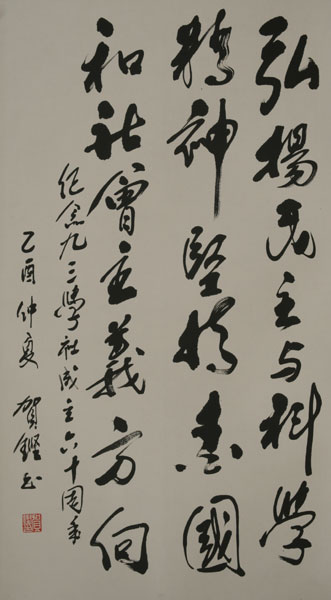 弘揚民主与科学
精神堅持愛國
和社會主義方向
紀念九三學社成立六十周年
乙酉仲夏 賀鏗书